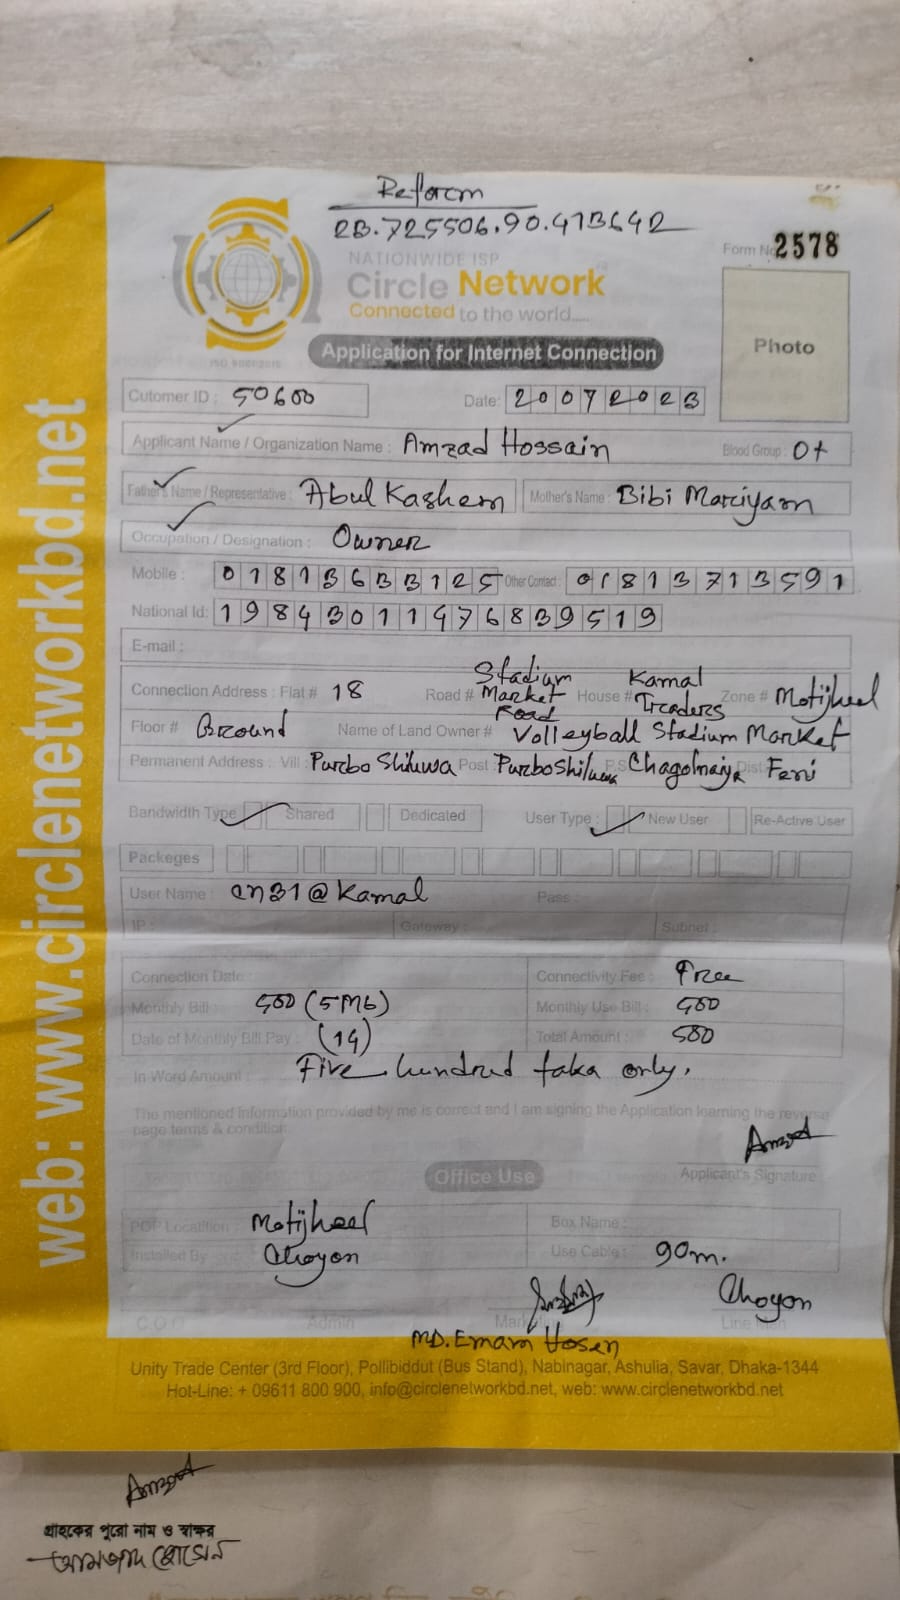 Reform
23.725506.90.413642
NATIONWIDE ISP
Form No 2578
Circle Network
Connected to the world.....
Photo
ISO 9001:2015
Application for Internet Connection
Cutomer ID : 50600 Date: 20072023
Applicant Name / Organization Name : Amzad Hossain Blood Group : O+
Father's Name / Representative : Abul Kashem Mother's Name : Bibi Mariyam
Occupation / Designation : Owner
Mobile : 01813633125 Other Contact : 01813713591
National Id: 19843011476839519
E-mail :
Connection Address : Flat # 18 Road # Stadium Market Road House # Kamal Traders Zone # Motijheel
Floor # Ground Name of Land Owner # Volleyball Stadium Market
Permanent Address : Vill : Purbo Shiluwa Post : Purbo Shiluwa P.S Chagolnaiya Dist Feni
Bandwidth Type Shared Dedicated User Type : New User Re-Active User
Packeges
User Name : cn31@kamal Pass :
IP : Gateway : Subnet :
Connection Date : Connectivity Fee : Free
Monthly Bill : 500 (5Mb) Monthly Use Bill : 500
Date of Monthly Bill Pay : (14) Total Amount : 500
In Word Amount : Five hundred taka only.
The mentioned information provided by me is correct and I am signing the Application learning the reverse
page terms & condition.
Amzad
Applicant's Signature
Office Use
POP Location : Motijheel Box Name :
Installed By Choyon Use Cable : 90m.
Choyon
C.O.O Admin Line Man
MD. Emam Hosen
Unity Trade Center (3rd Floor), Pollibiddut (Bus Stand), Nabinagar, Ashulia, Savar, Dhaka-1344
Hot-Line: + 09611 800 900, info@circlenetworkbd.net, web: www.circlenetworkbd.net
web: www.circlenetworkbd.net
Amzad
গ্রাহকের পুরো নাম ও স্বাক্ষর
আমজাদ হোসেন